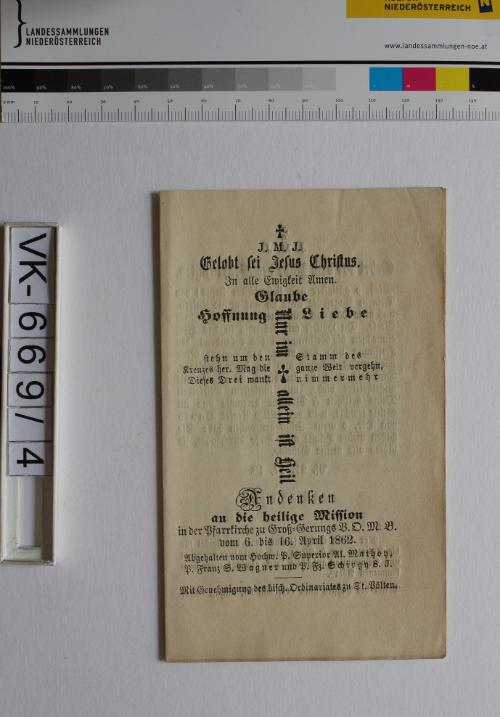 LANDESSAMMLUNGEN
NIEDERÖSTERREICH
NIEDERÖSTERREICH
www.landessammlungen-noe.at
VK-669/4
J. M. J.
Gelobt sei Jesus Christus.
In alle Ewigkeit Amen.
Glaube
Hoffnung Liebe
Nur im ✢ allein ist Heil
stehn um den Stamm des
Kreuzes her. Mag die ganze Welt vergehn,
Dieses Drei wankt nimmermehr
Andenken
an die heilige Mission
in der Pfarrkirche zu Groß-Gerungs V. O. M. B.
vom 6. bis 16. April 1862.
Abgehalten vom Hochw. P. Superior Al. Mathoy,
P. Franz S. Wagner und P. Fz. Schirgy S. J.
Mit Genehmigung des bisch. Ordinariates zu St. Pölten.